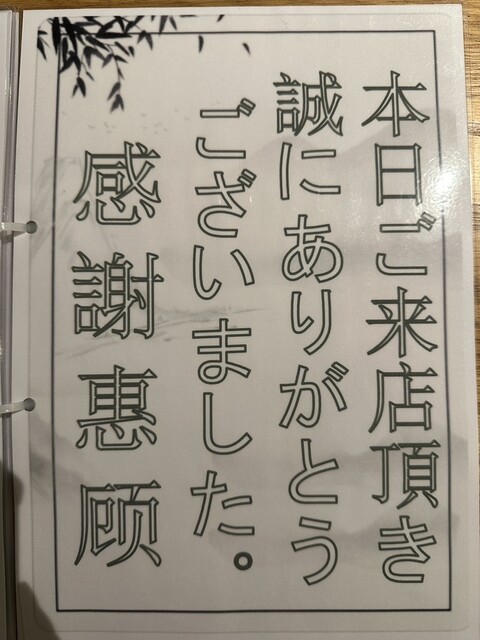 本日ご来店頂き
誠にありがとう
ございました。
感謝惠顾